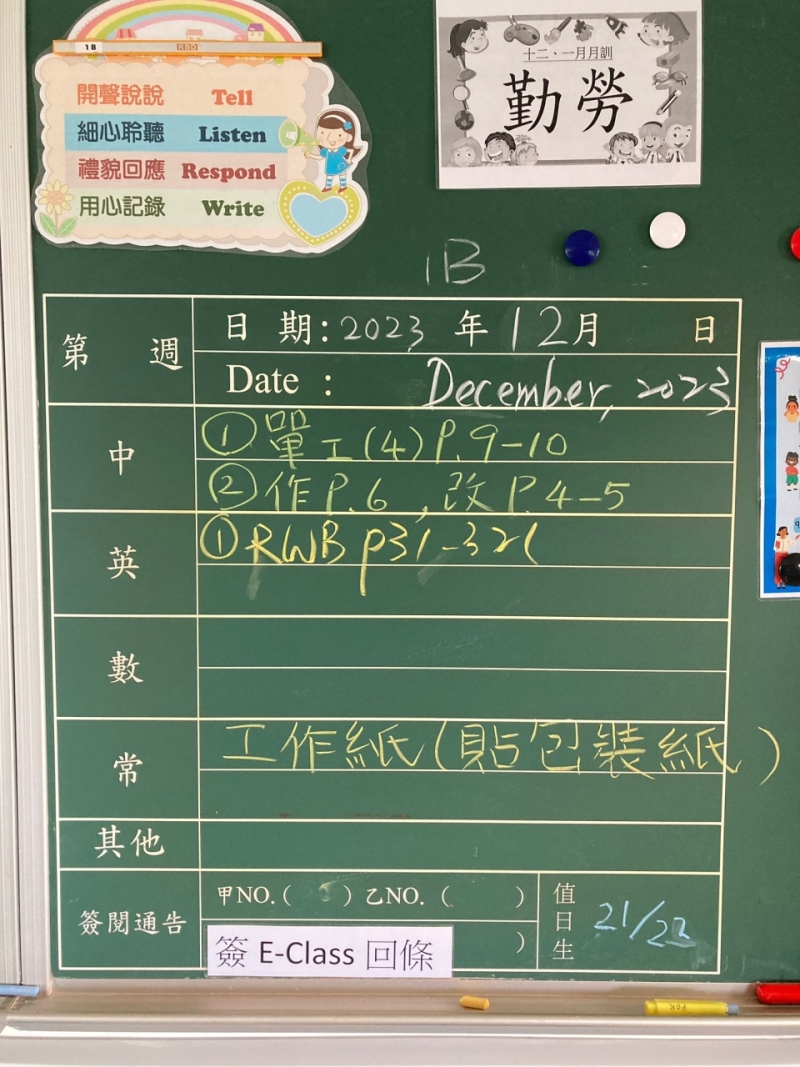 1B
RBD
開聲說說 Tell
細心聆聽 Listen
禮貌回應 Respond
用心記錄 Write
十二、一月月訓
勤勞
1B
第 週
日 期: 2023 年 12月 日
Date : December, 2023
中
① 單工(4) P.9-10
② 作 P.6 , 改 P.4-5
英
① RWB p31-32
數
常
工作紙(貼包裝紙)
其他
簽閱通告
甲NO.( ) 乙NO. ( )
)
簽 E-Class 回條
值日生
21/23